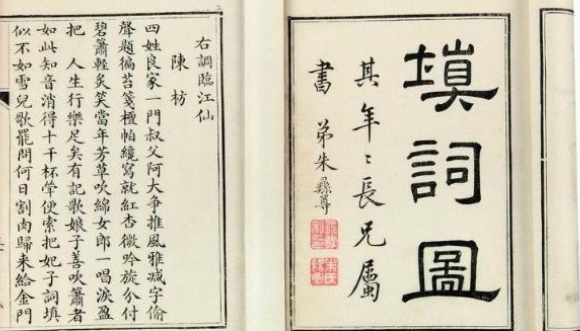 塡詞圖
其年〻長兄屬
書 弟朱彝尊
右調臨江仙
陳枋
四姓良家一門叔父阿大爭推風雅減字偷
聲題徧苔箋檀帕纔寫就紅杏微吟旋分付
碧簫輕炙笑當年芳草吹綿女郎一唱淚盈
把 人生行樂足矣有記歌娘子善吹簫者
如此知音消得十千杯斝便索把妃子詞填
似不如雪兒歌罷問何日割肉歸来給金門